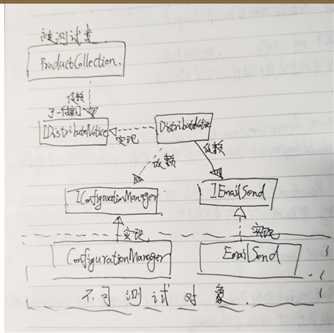 被测试类
ProductCollection
依赖
IDistributeNotice
实现
DistributeNotice
依赖
依赖
IConfigurationManager
IEmailSend
实现
实现
ConfigurationManager
EmailSend
不可测试对象